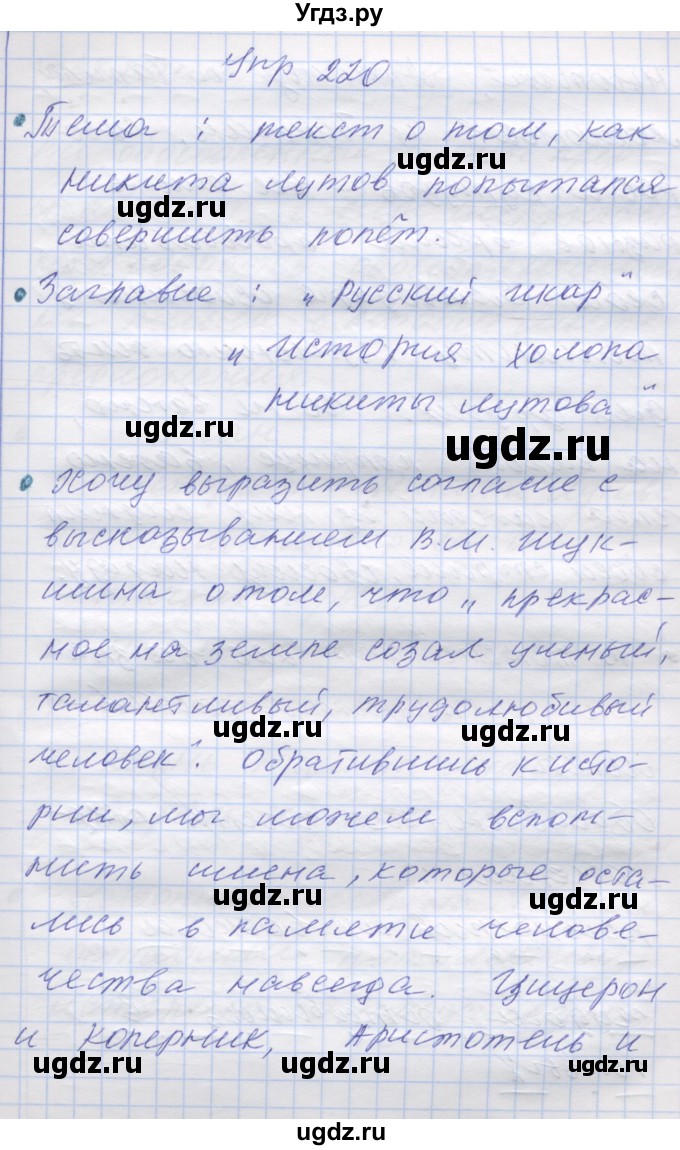 Угдз.ру
Упр 220
Тема : текст о том, как
ugdz.ru
Никита Лутов попытался
ugdz.ru
совершить полёт.
Заглавие : „Русский икар"
„История холопа
Никиты Лутова"
ugdz.ru
ugdz.ru
Хочу выразить согласие с
высказыванием В.М. Шук-
шина о том, что „прекрас-
ное на земле созал умный,
талантливый, трудолюбивый
ugdz.ru
ugdz.ru
человек". Обратившись к исто-
рии, мы можем вспом-
нить имена, которые оста-
ugdz.ru
ugdz.ru
лись в памяти челове-
чества навсегда. Цицерон
и Коперник, Аристотель и
ugdz.ru
ugdz.ru
ugdz.ru
ugdz.ru